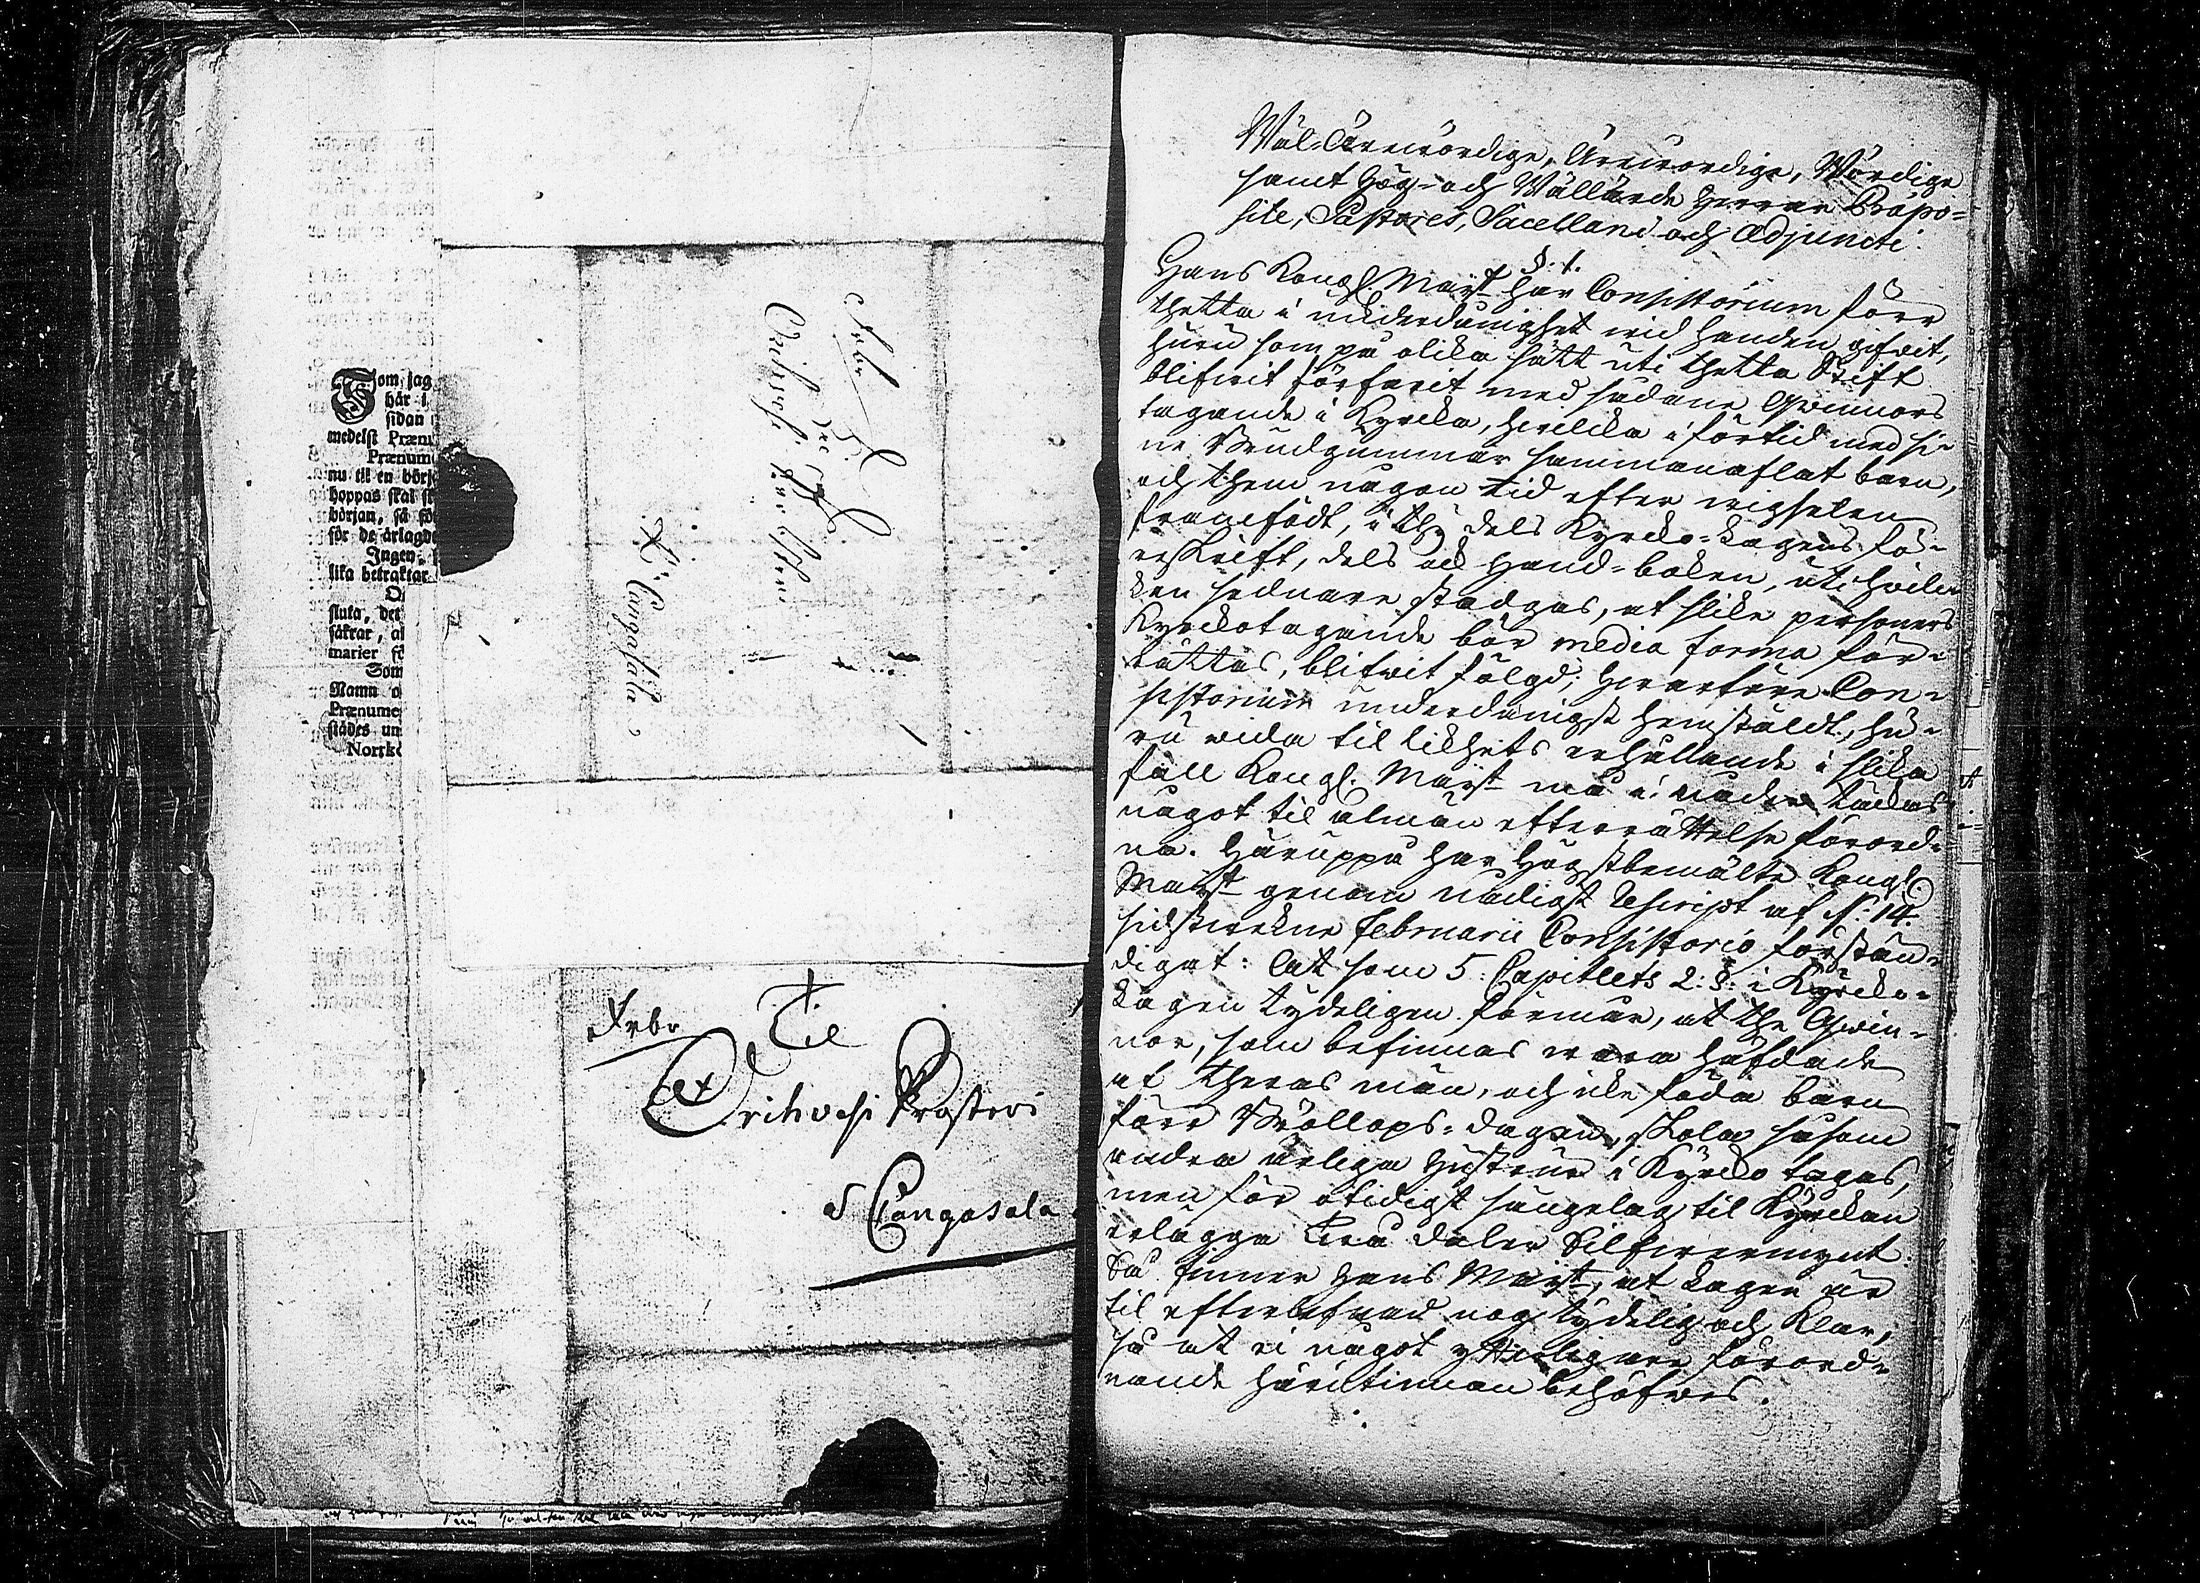 Tom jag
här i
sidan
medelst Præn
Prænum
nu til en börj
hoppas skal s
början, så sö
för de årlagde
Ingen,
lika betraktar
sluta, det
säkrar, al
marier fö
Som
Namn o
Prænume
städes un
Norrkö
Febr
Orihvesi Prosteri
K. Cangasala
Til
Febr
Orihvesi Prosteri
Cangasala
Wäl-Ärewördige, Ärewördige, Wördige
samt Hög- och Wällärde Herrar Præpo-
site, Pastores, Sacellani och Adjuncti.
§. 1.
Hans Kongl. Maijt har Consistorium förr
thetta i underdånighet wid handen gifwit,
huru som på olika sätt uti thetta Stift
blifwit förfarit med sådane Qwinnors
tagande i Kyrcka, hwilcka i förtid med si-
ne Brudgummar sammanaflat barn,
och them någon tid efter wigselen
framfödt, i thy dels Kyrcko-Lagens fö-
reskrift, dels ock Hand-boken, uti hwilc-
ken sednare stadgas, at slike personers
Kyrckotagande bör media forma för-
rättas, blifwit fölgd; Hwarföre Con-
sistorium underdånigst hemstäldt, hu-
ru wida til likhets erhållande i slika
fall Kongl. Maijt må i nåder täckas
något til alman efterrättelse förord-
na. Häruppå har Högstbemälte Kongl.
Maijt genom nådigt Rescript af d. 14.
sidstwekne Februarii Consistorio förstän-
digat: At som 5. Capitlets 2. §. i Kyrcko-
Lagen tydeligen förmår, at the Qwin-
nor, som befinnas wara häfdade
af theras män, och icke föda barn
förr Bröllops-dagen, skola såsom
andra ärliga Hustrur i Kyrcko tagas,
men för otidigt sängelag til Kyrckan
erlägga twå daler Silfwermynt.
Så finner Hans Maijt, at Lagen är
til efterlefnad nog tydelig och klar,
så at ei något ytterligare förord-
nande häritinnan behöfwes.